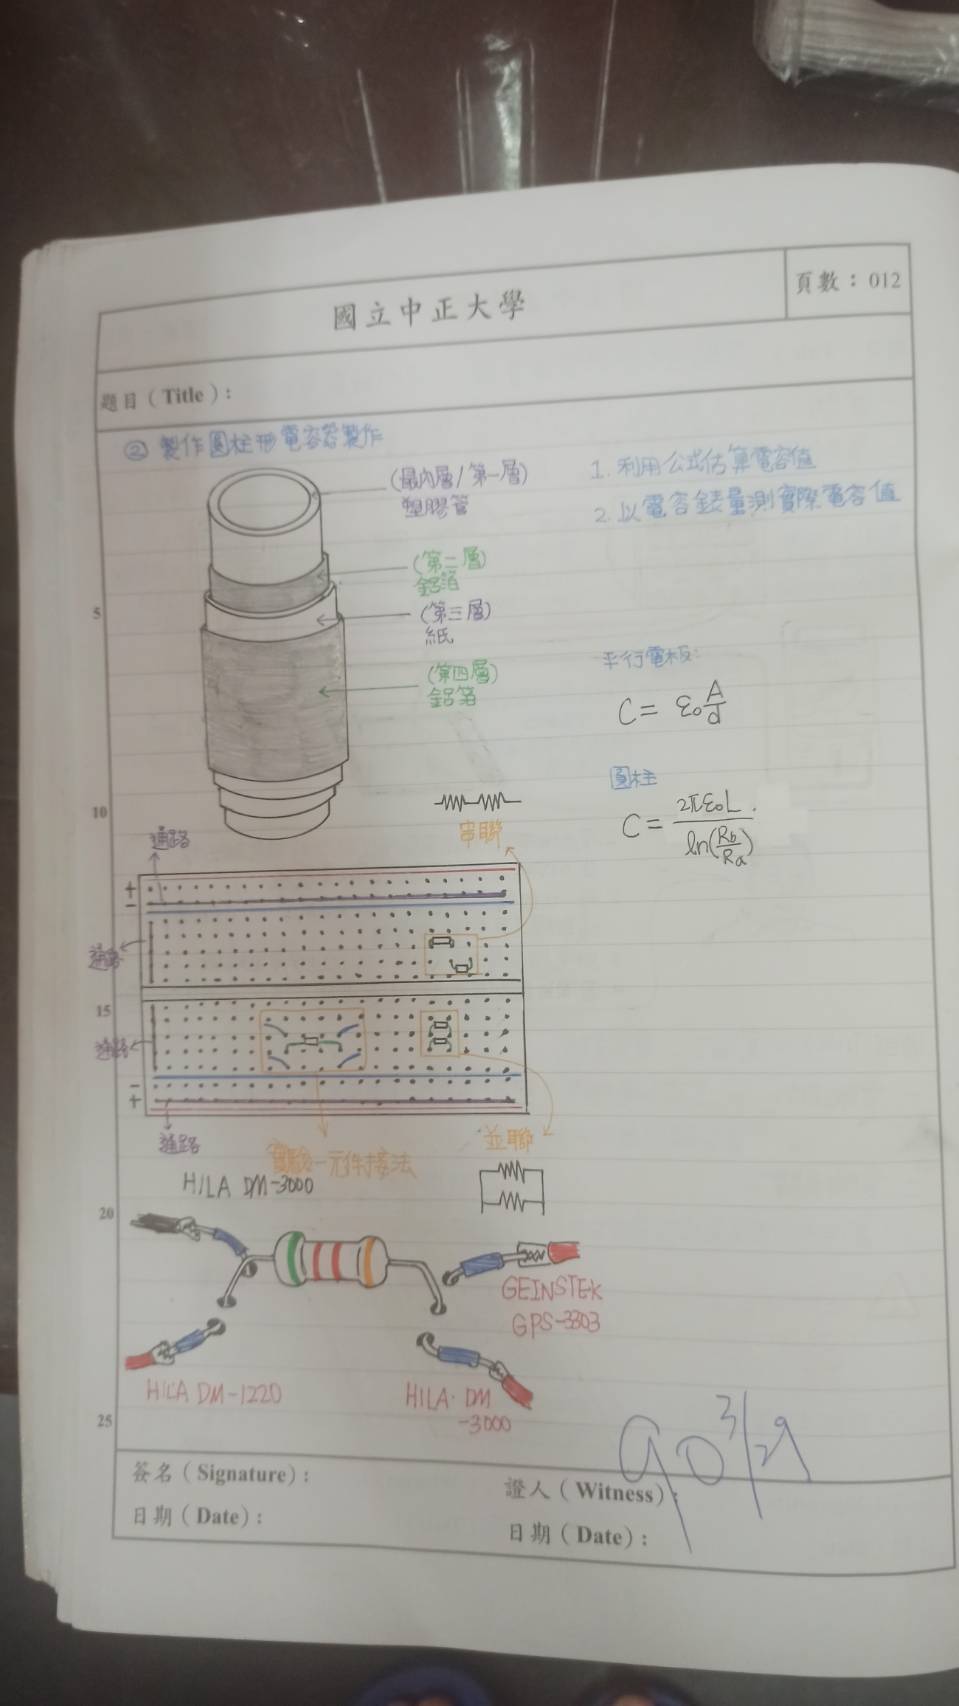 國立中正大學
頁數：012
題目（Title）：
② 製作圓柱形電容器製作
（最內層/第一層）
塑膠管
（第二層）
鋁箔
（第三層）
紙
（第四層）
鋁箔
1. 利用公式估算電容值
2. 以電容錶量測實際電容值
平行電板：
C = ε₀ A/d
圓柱
C = 2πε₀L / ln(Rb/Ra)
5
10
15
20
25
串聯
通路
+
−
通路
通路
−
+
通路
實驗一元件接法
並聯
HILA DM-3000
GEINSTEK
GPS-3303
HILA DM-1220
HILA DM
-3000
90 3/29
簽名（Signature）：
日期（Date）：
證人（Witness）：
日期（Date）：